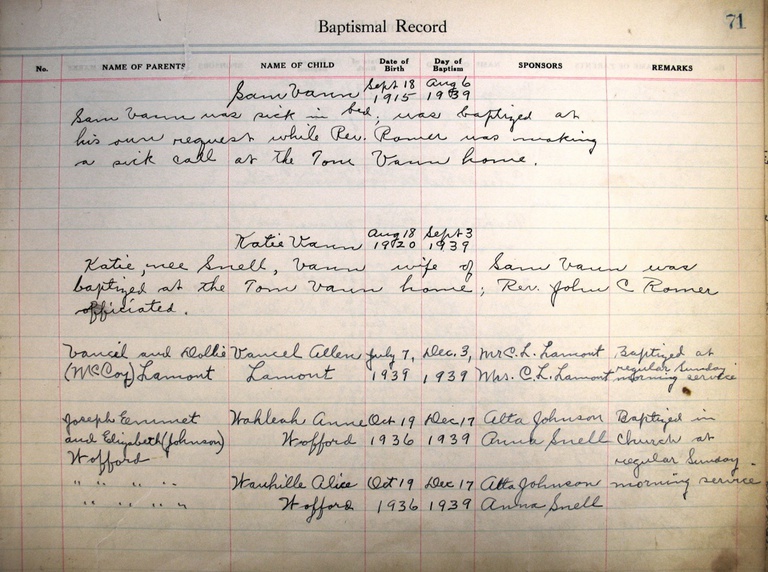 71
Baptismal Record
No. NAME OF PARENTS NAME OF CHILD Date of Birth Day of Baptism SPONSORS REMARKS
Sept 18 Aug 6
Sam Vann 1915 1939
Sam Vann was sick in bed, was baptized at
his own request while Rev. Romer was making
a sick call at the Tom Vann home.
Aug 18 Sept 3
Katie Vann 1920 1939
Katie, nee Snell, Vann wife of Sam Vann was
baptized at the Tom Vann home; Rev. John C Romer
officiated.
Vancil and Dollie Vancel Allen July 7, Dec. 3, Mr C. L. Lamont Baptized at
(McCoy) Lamont Lamont 1939 1939 Mrs. C. L. Lamont regular Sunday
morning service
Joseph Emmet Wahleah Anne Oct 19 Dec 17 Alta Johnson Baptized in
and Elizabeth (Johnson) Wofford 1936 1939 Anna Snell Church at
Wofford regular Sunday
" " " " Wauhille Alice Oct 19 Dec 17 Alta Johnson morning service
" " " " Wofford 1936 1939 Anna Snell